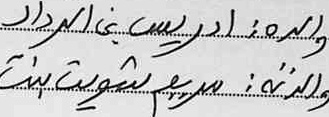 والده: ادريس بن المرداد
والدته: مريم شويت بنت